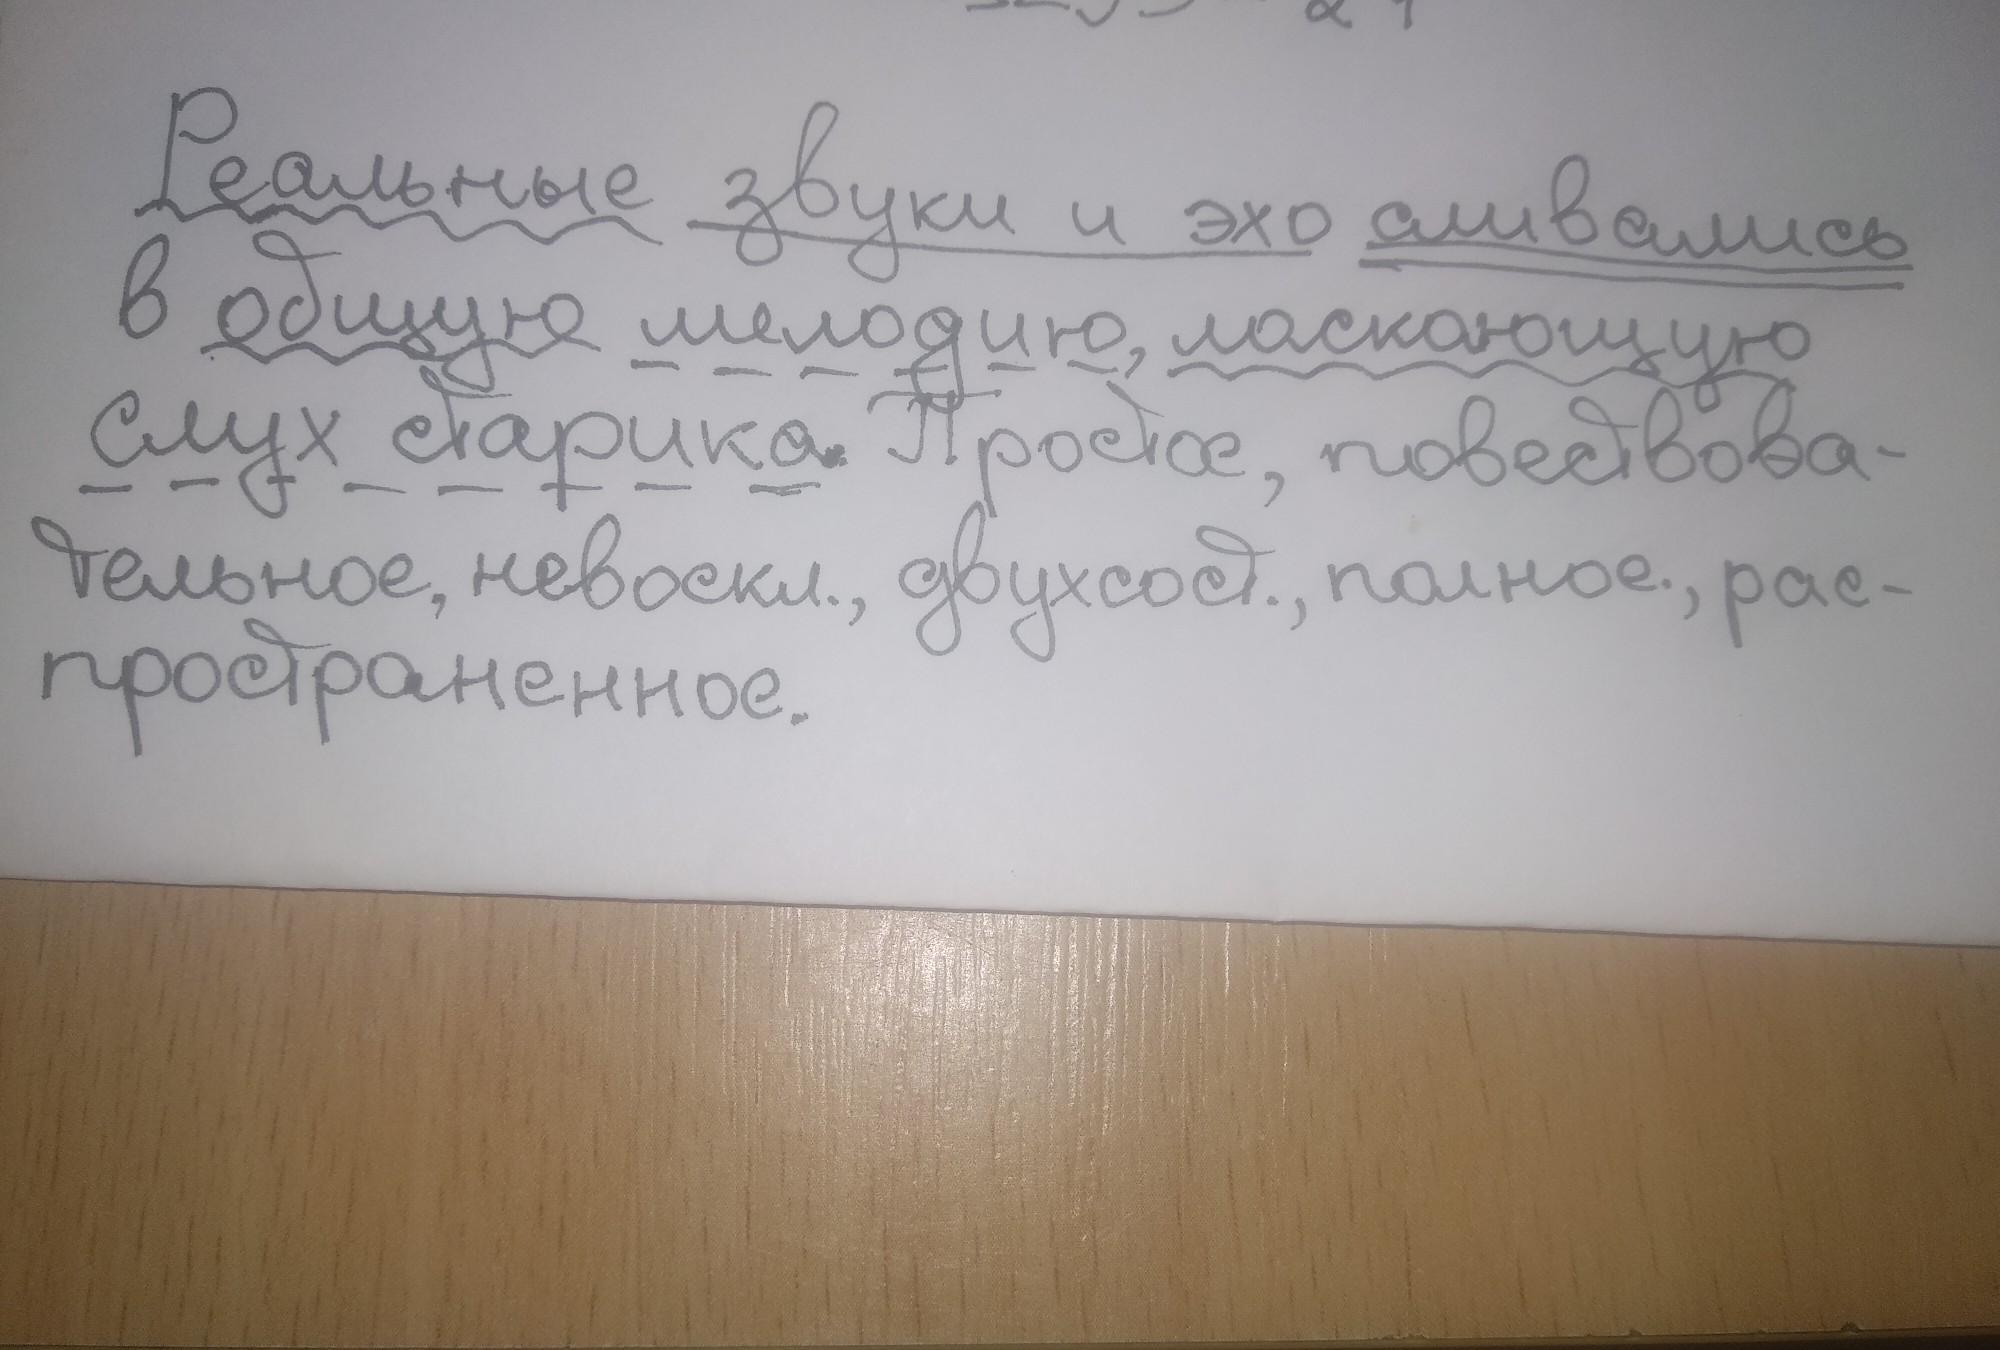 Реальные звуки и эхо сливались
в общую мелодию, ласкающую
слух старика. Простое, повествова-
тельное, невоскл., двухсост., полное., рас-
пространенное.